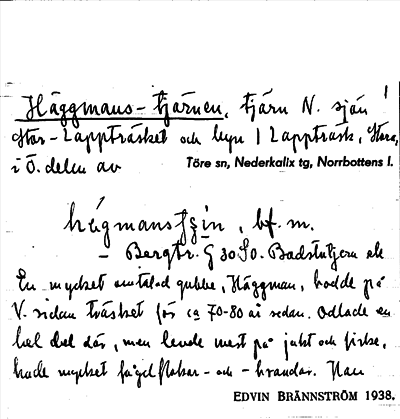 Häggmans-tjärnen, tjärn N. sjön
Stor-Lappträsket och byn Lappträsk, Stora,
i Ö. delen av Töre sn, Nederkalix tg, Norrbottens l.
bf. m.
– Bergstr. G 30 SO. Badstutjern
En mycket omtalad gubbe, Häggman, bodde på
V. sidan träsket för ca 70-80 år sedan. Odlade en
hel del där, men levde mest på jakt och fiske,
hade mycket fågelflakar- och -brandar. Han
EDVIN BRÄNNSTRÖM 1938.